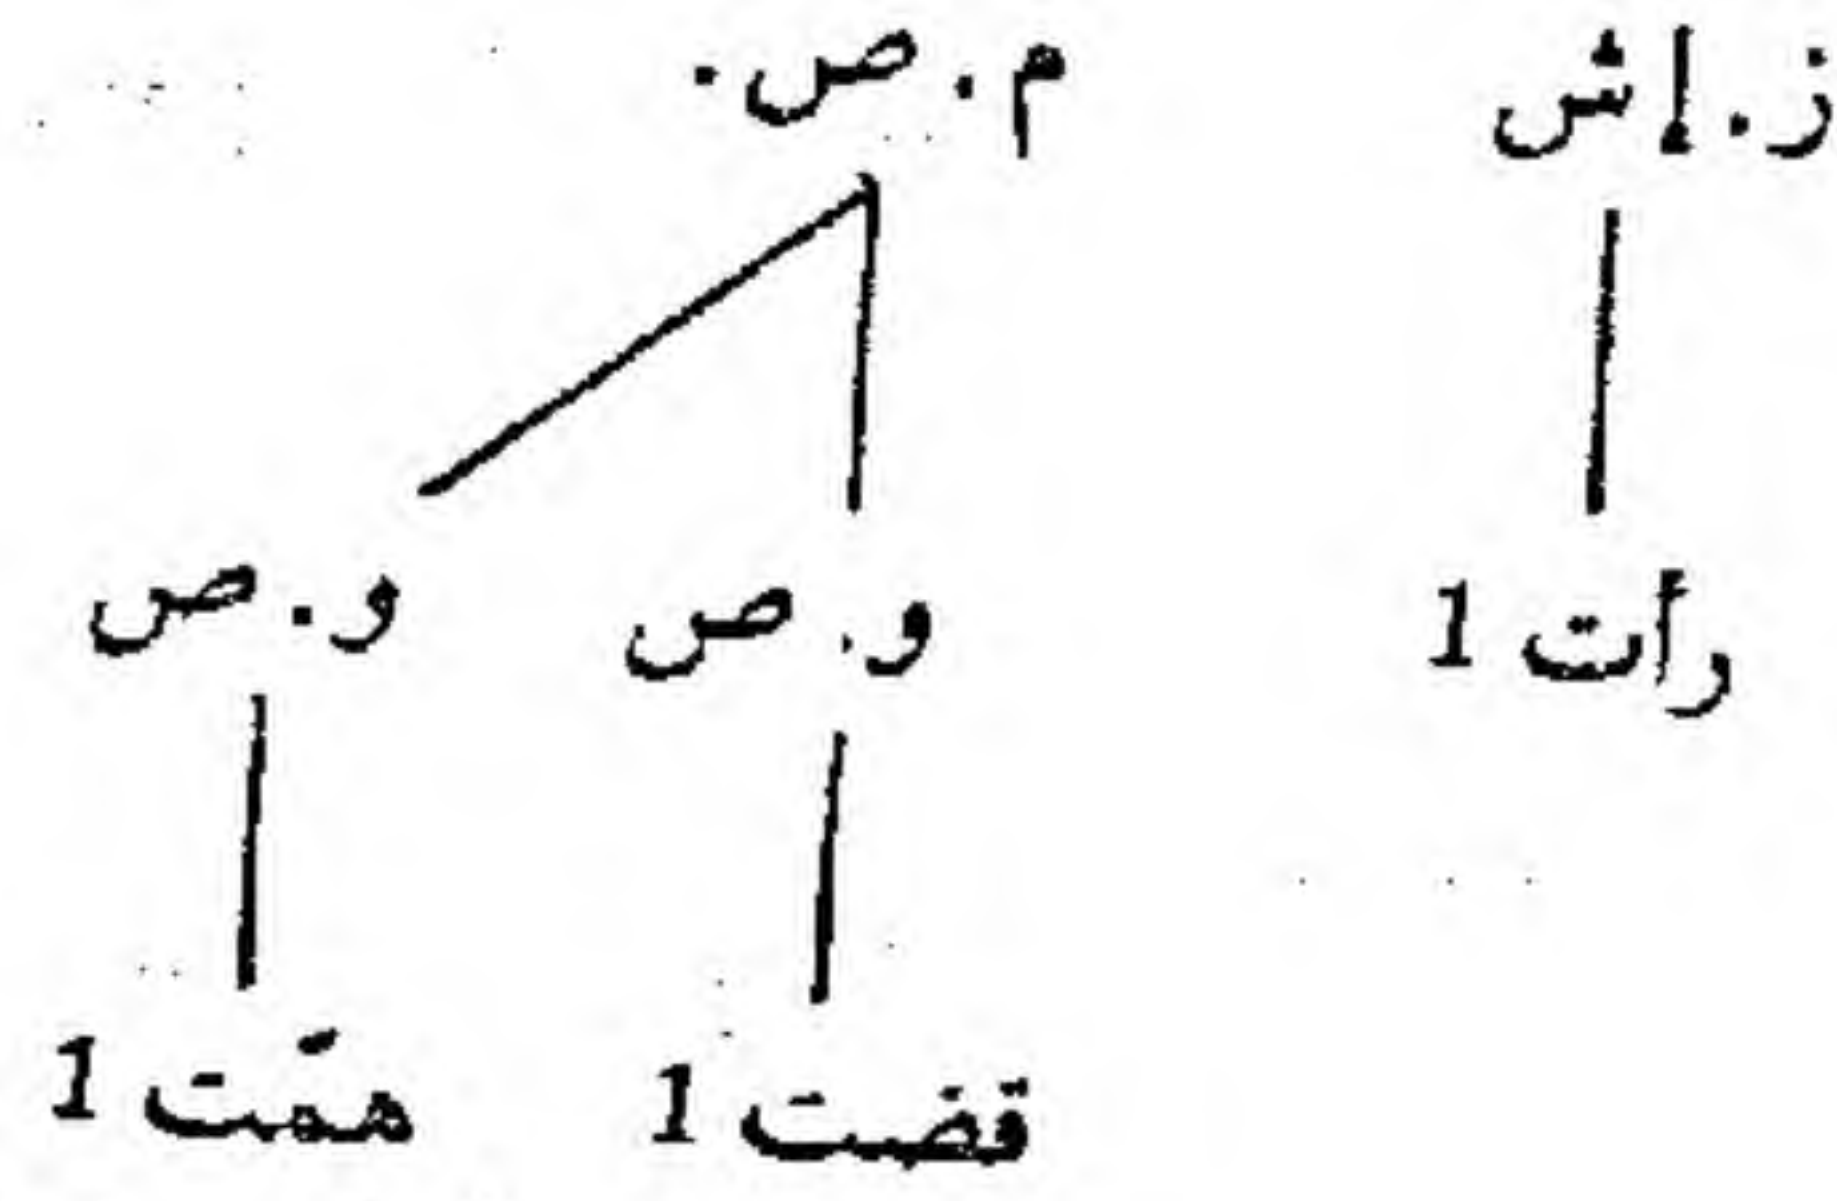 ز. إش م. ص.
رأت 1 و. ص و. ص
قضت 1 همّت 1